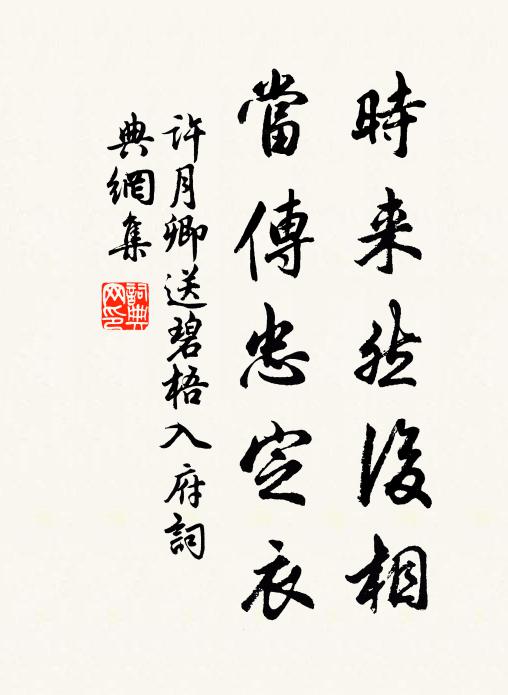 時来然後相
當傳忠定衣
許月卿送碧梧入府詞
典網集
詞典
网印